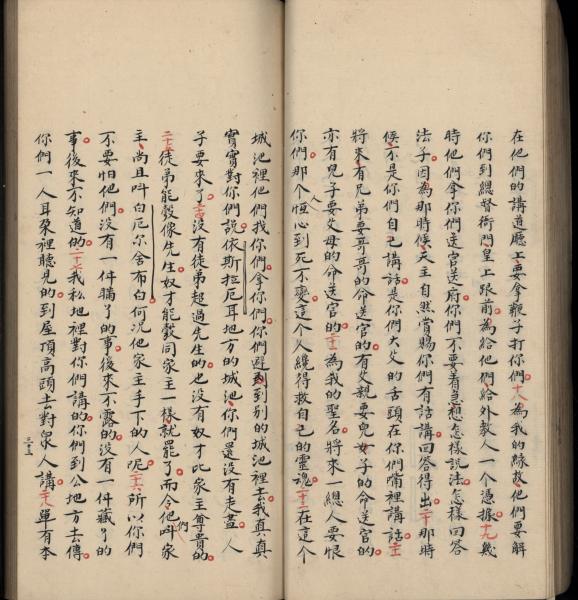 在他們的講道廳上要拿鞭子打你們十八為我的緣故他們要解
你們到總督衙門皇上跟前為給他們給外教人一个憑據十九幾
時他們拿你們送官送府你們不要着急想怎樣說法怎樣回答
法子因為那時候天主自然賞賜你們有話講回答得出二十那時
候不是你們自己講話是你們大父的舌頭在你們嘴裡講話二十一
將來有兄弟要哥哥的命送官的有父親要兒女子的命送官的
亦有兒子要父母的命送官的二十二為我的聖名將來一總人要恨
你們那个人恒心到死不變這个人纔得救自己的靈魂二十三在這个
城池裡他們找你們拿你們你們避到別的城池裡去我真真
實實對你們說依斯拉厄耳地方的城池你們還没有走盡人
子要來了二十四没有徒弟超過先生的也没有奴才比家主尊貴的
二十五徒弟能彀像先生奴才能彀同家主一樣就罷了而今他們叫家
主尚且叫白尼尔舍布白何况他家主手下的人呢二十六所以你們
不要怕他們没有一件瞞了的事後來不露的没有一件藏了的
事後來不知道的二十七我私地裡對你們講的你們到公地方去傳
你們一人耳朵裡聽見的到屋頂高頭去對众人講二十八單有本